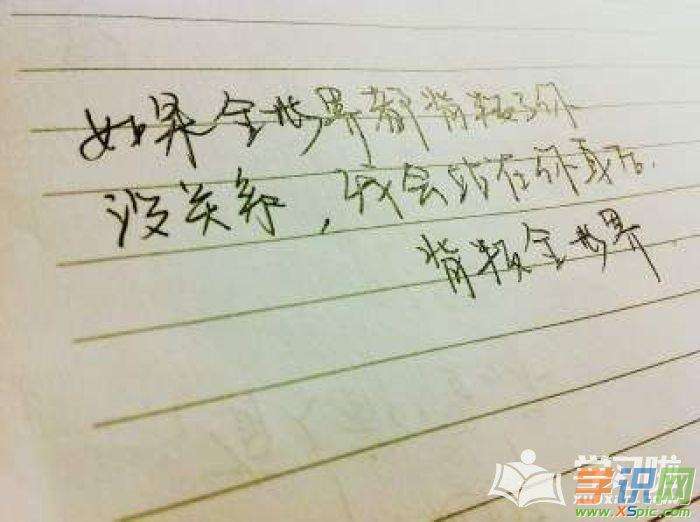 如果全世界都背叛了你
没关系，我会站在你身后.
背叛全世界
学习啦
学识网
www.XSpic.com